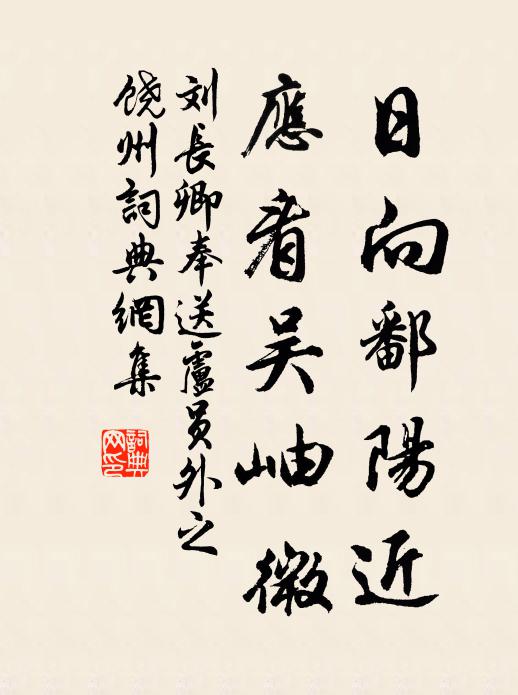 日向鄱陽近
應看吴岫微
刘長卿奉送盧员外之
饶州詞典網集
詞典网印